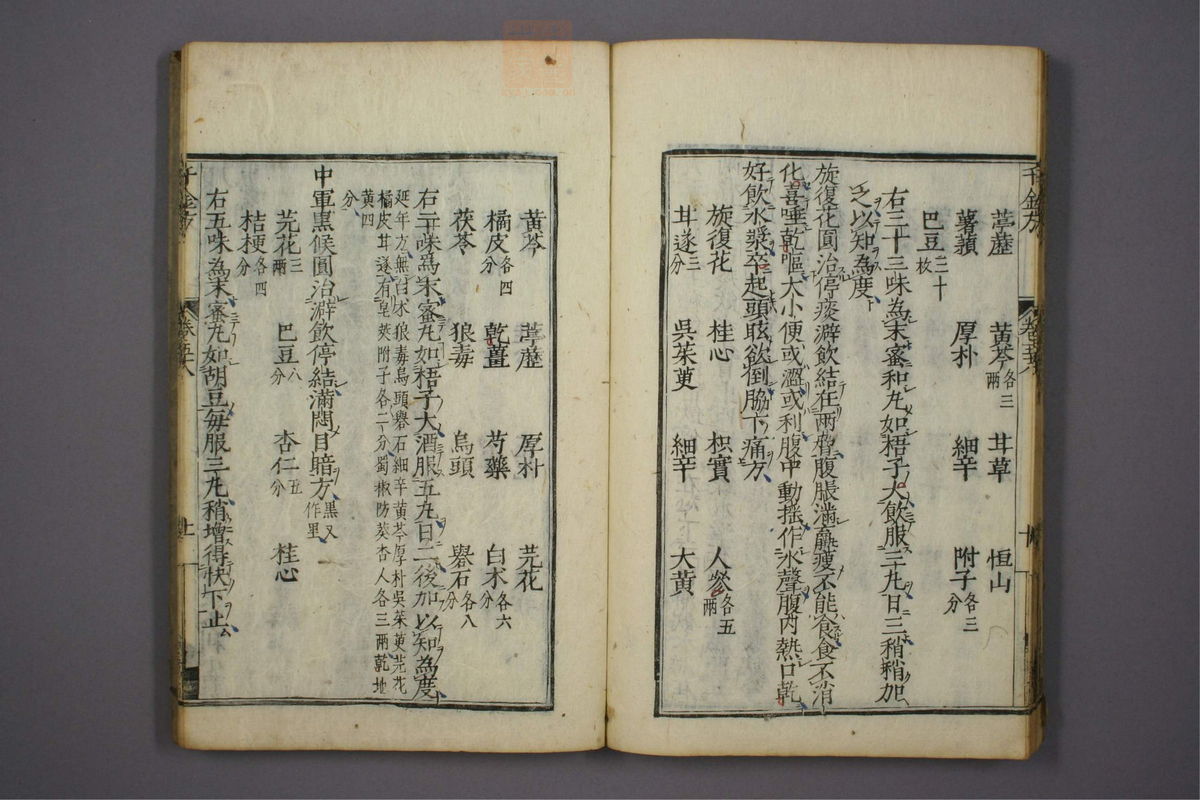 葶藶 黃芩各三兩 甘草 恒山
薯蕷 厚朴 細辛 附子各三分
巴豆三十枚
右三十三味為末蜜和丸如梧子大飲服三丸日三稍稍加
之以知為度
旋復花圓治停痰澼飲結在兩脅腹脹滿羸瘦不能食食不消
化喜唾乾嘔大小便或澀或利腹中動搖作水聲腹內熱口乾
好飲水漿卒起頭眩欲倒脇下痛方
旋復花 桂心 枳實 人參各五兩
甘遂三分 吳茱萸 細辛 大黃
黃芩 葶藶 厚朴 芫花
橘皮各四分 乾薑 芍藥 白朮各六分
茯苓 狼毒 烏頭 礜石各八分
右二味為末蜜丸如梧子大酒服五丸日二後加以知為度
延年方無白朮狼毒烏頭礜石細辛黃芩厚朴吳茱萸芫花
橘皮甘遂有皂莢附子各二分蜀椒防葵杏人各三兩乾地
黃四分
中軍黑候圓治澼飲停結滿悶目暗方黑又作里
芫花三兩 巴豆八分 杏仁五分 桂心
桔梗各四分
右五味為末蜜丸如胡豆每服三丸稍增得快下止
千金方